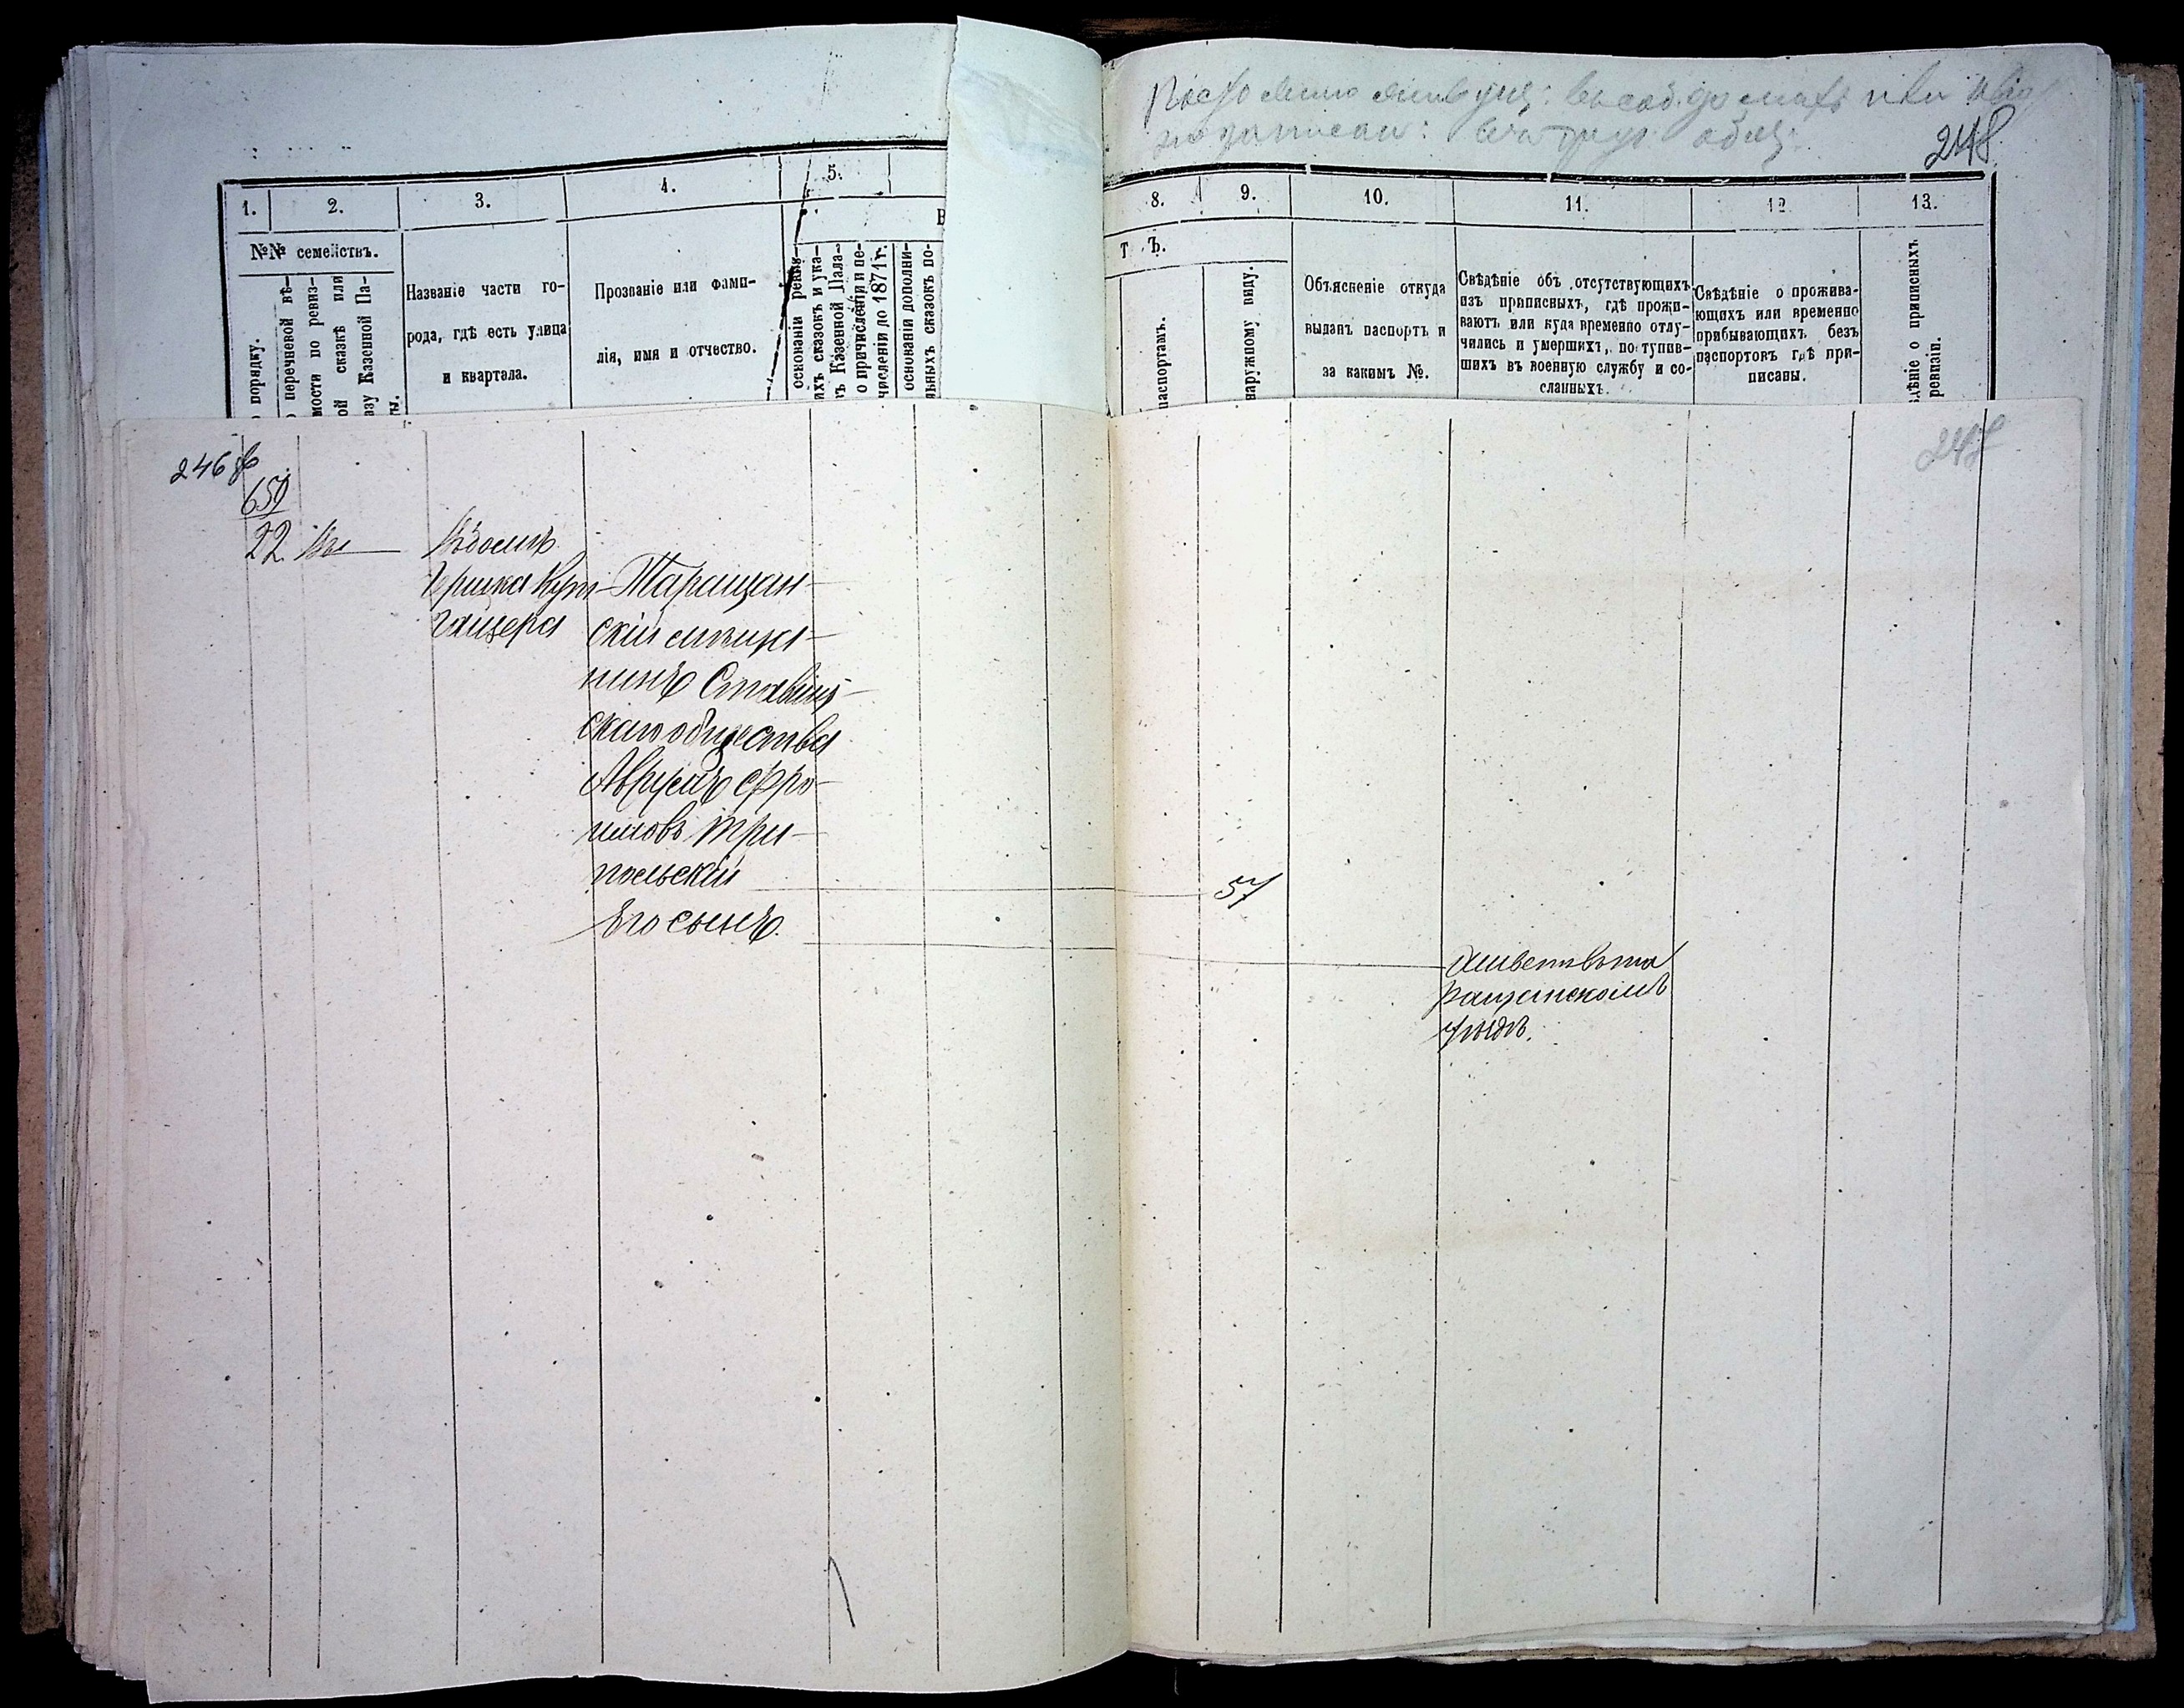 248
1.
2.
3.
4.
5.
8.
9.
10.
11.
12.
13.
№№ семействъ.
порядку.
перечневой вѣ-
мости по ревиз-
ой сказкѣ или
азу Казенной Па-
ты.
Названіе части го-
рода, гдѣ есть улица
и квартала.
Прозваніе или фами-
лія, имя и отчество.
В
основаніи ревиз-
ихъ сказокъ и ука-
ъ Казенной Пала-
о причисленіи и пе-
численіи до 1871 г.
основаніи дополни-
льныхъ сказокъ по-
т ъ.
паспортамъ.
наружному виду.
Объясненіе откуда
выданъ паспортъ и
за какимъ №.
Свѣдѣніе объ отсутствующихъ
изъ приписныхъ, гдѣ прожи-
ваютъ или куда временно отлу-
чились и умершихъ, поступив-
шихъ въ военную службу и со-
сланныхъ.
Свѣдѣніе о прожива-
ющихъ или временно
прибывающихъ безъ
паспортовъ гдѣ при-
писаны.
дѣніе о приписныхъ
ревизіи.
246
247
659
22
Въ домѣ
Таращан-
скій мѣща-
нинъ Ставищ-
скаго общества
Аврумъ Фро-
имовъ Три-
польскій
57
Его сынъ
живетъ въ Та
ращанскомъ
уѣздѣ.